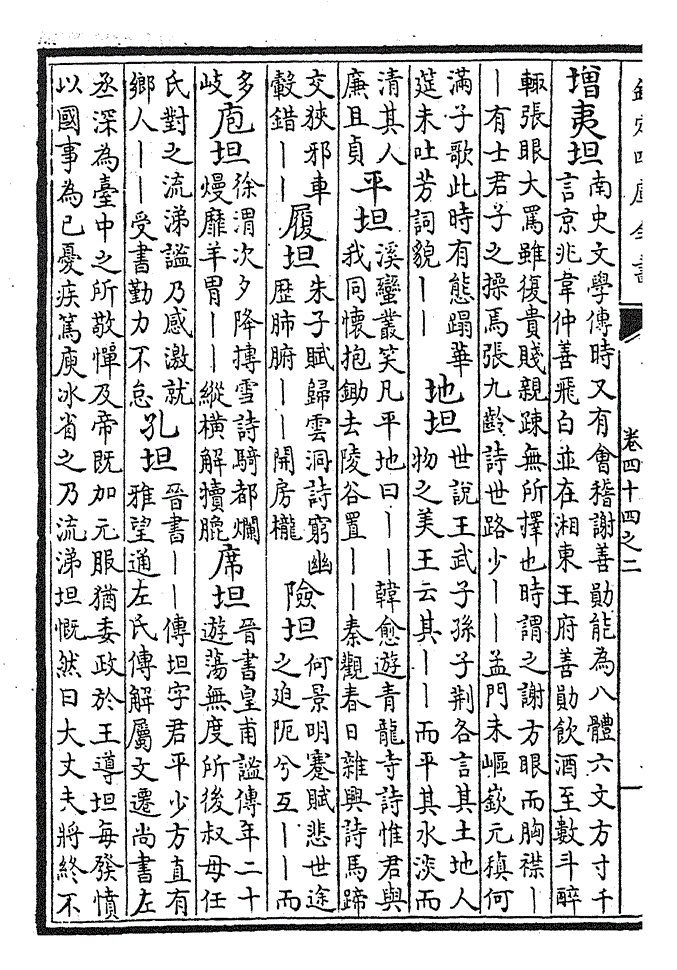 欽定四庫全書
卷四十四之二
一
增夷坦
南史文學傳時又有會稽謝善勛能為八體六文方寸千
言京兆韋仲善飛白並在湘東王府善勛飲酒至數斗醉
輙張眼大罵雖復貴賤親疎無所擇也時謂之謝方眼而胸襟丨
丨有士君子之操焉張九齡詩世路少丨丨孟門未嶇嶔元稹何
滿子歌此時有態蹋華
筵未吐芳詞貌丨丨
地坦
世說王武子孫子荆各言其土地人
物之美王云其丨丨而平其水淡而
清其人
廉且貞
平坦
溪蠻叢笑凡平地曰丨丨韓愈遊青龍寺詩惟君與
我同懷抱鋤去陵谷置丨丨秦觀春日雜興詩馬蹄
交狹邪車
轂錯丨丨
履坦
朱子賦歸雲洞詩窮幽
歷肺腑丨丨開房櫳
險坦
何景明蹇賦悲世途
之廹阨兮互丨丨而
多
岐
庖坦
徐渭次夕降摶雪詩騎都爛
熳靡羊胃丨丨縱橫解犢腿
席坦
晉書皇甫謐傳年二十
遊蕩無度所後叔母任
氏對之流涕謐乃感激就
鄉人丨丨受書勤力不怠
孔坦
晉書丨丨傳坦字君平少方直有
雅望通左氏傳解屬文遷尚書左
丞深為臺中之所敬憚及帝既加元服猶委政於王導坦每發憤
以國事為已憂疾篤庾冰省之乃流涕坦慨然曰大丈夫將終不